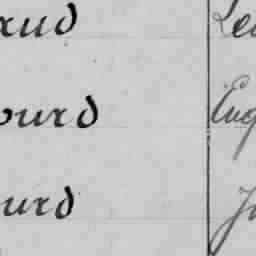 aud Le
ourd Eug
urd J